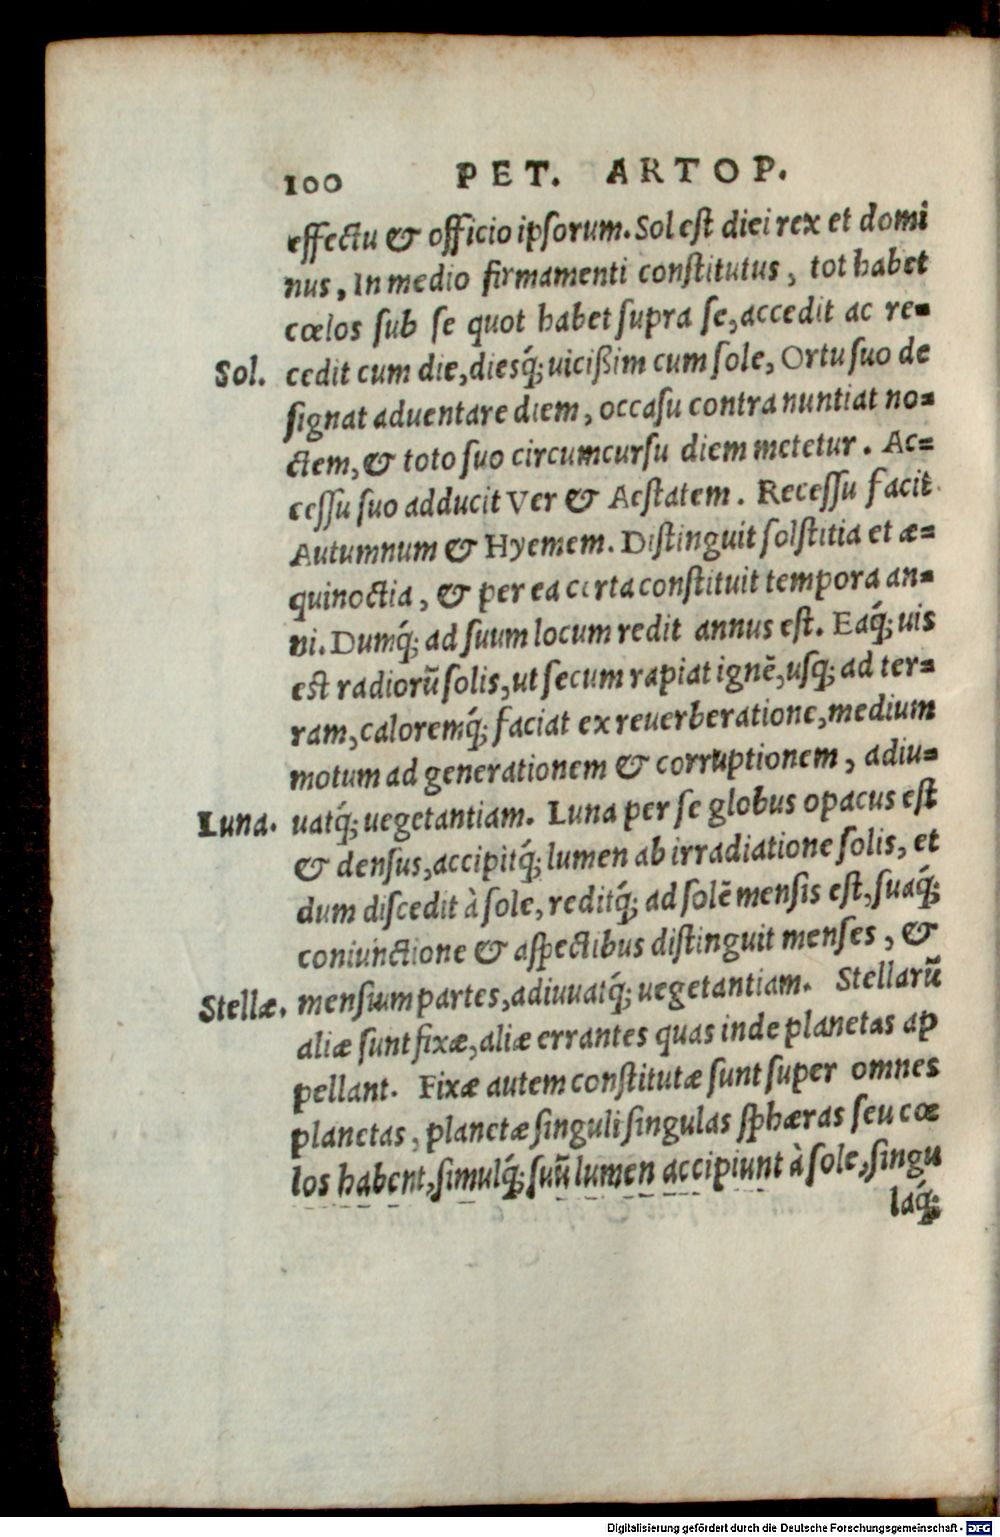 100 PET. ARTOP.
effectu & officio ipsorum. Sol est diei rex et domi
nus, In medio firmamenti constitutus, tot habet
cœlos sub se quot habet supra se, accedit ac re=
Sol. cedit cum die, diesq́; uicißim cum sole, Ortu suo de
signat aduentare diem, occasu contra nuntiat no=
ctem, & toto suo circumcursu diem metetur. Ac=
cessu suo adducit Ver & Aestatem. Recessu facit
Autumnum & Hyemem. Distinguit solstitia et æ=
quinoctia, & per ea certa constituit tempora an=
ni. Dumq́; ad suum locum redit annus est. Eaq́; uis
est radiorũ solis, ut secum rapiat ignẽ, usq; ad ter=
ram, caloremq́; faciat ex reuerberatione, medium
motum ad generationem & corruptionem, adiu=
Luna. uatq́; uegetantiam. Luna per se globus opacus est
& densus, accipitq́; lumen ab irradiatione solis, et
dum discedit à sole, reditq́; ad solẽ mensis est, suaq́;
coniunctione & aspectibus distinguit menses, &
Stellæ. mensium partes, adiuuatq́; uegetantiam. Stellarũ
aliæ sunt fixæ, aliæ errantes quas inde planetas ap
pellant. Fixæ autem constitutæ sunt super omnes
planetas, planetæ singuli singulas sphæras seu cœ
los habent, simulq́; suũ lumen accipiunt à sole, singu
laq́;
Digitalisierung gefördert durch die Deutsche Forschungsgemeinschaft - DFG